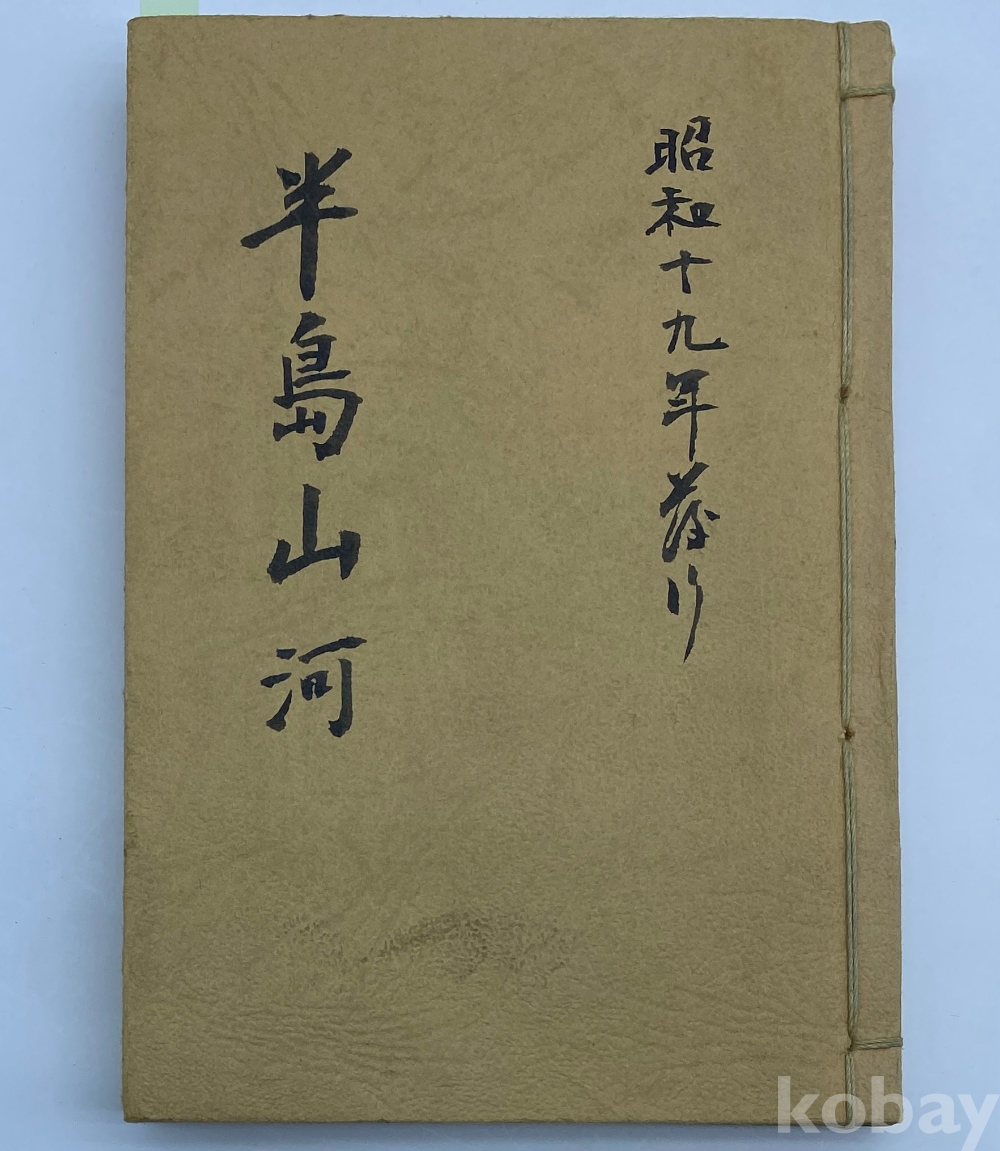 昭和十九年發行
半島山河
kobay